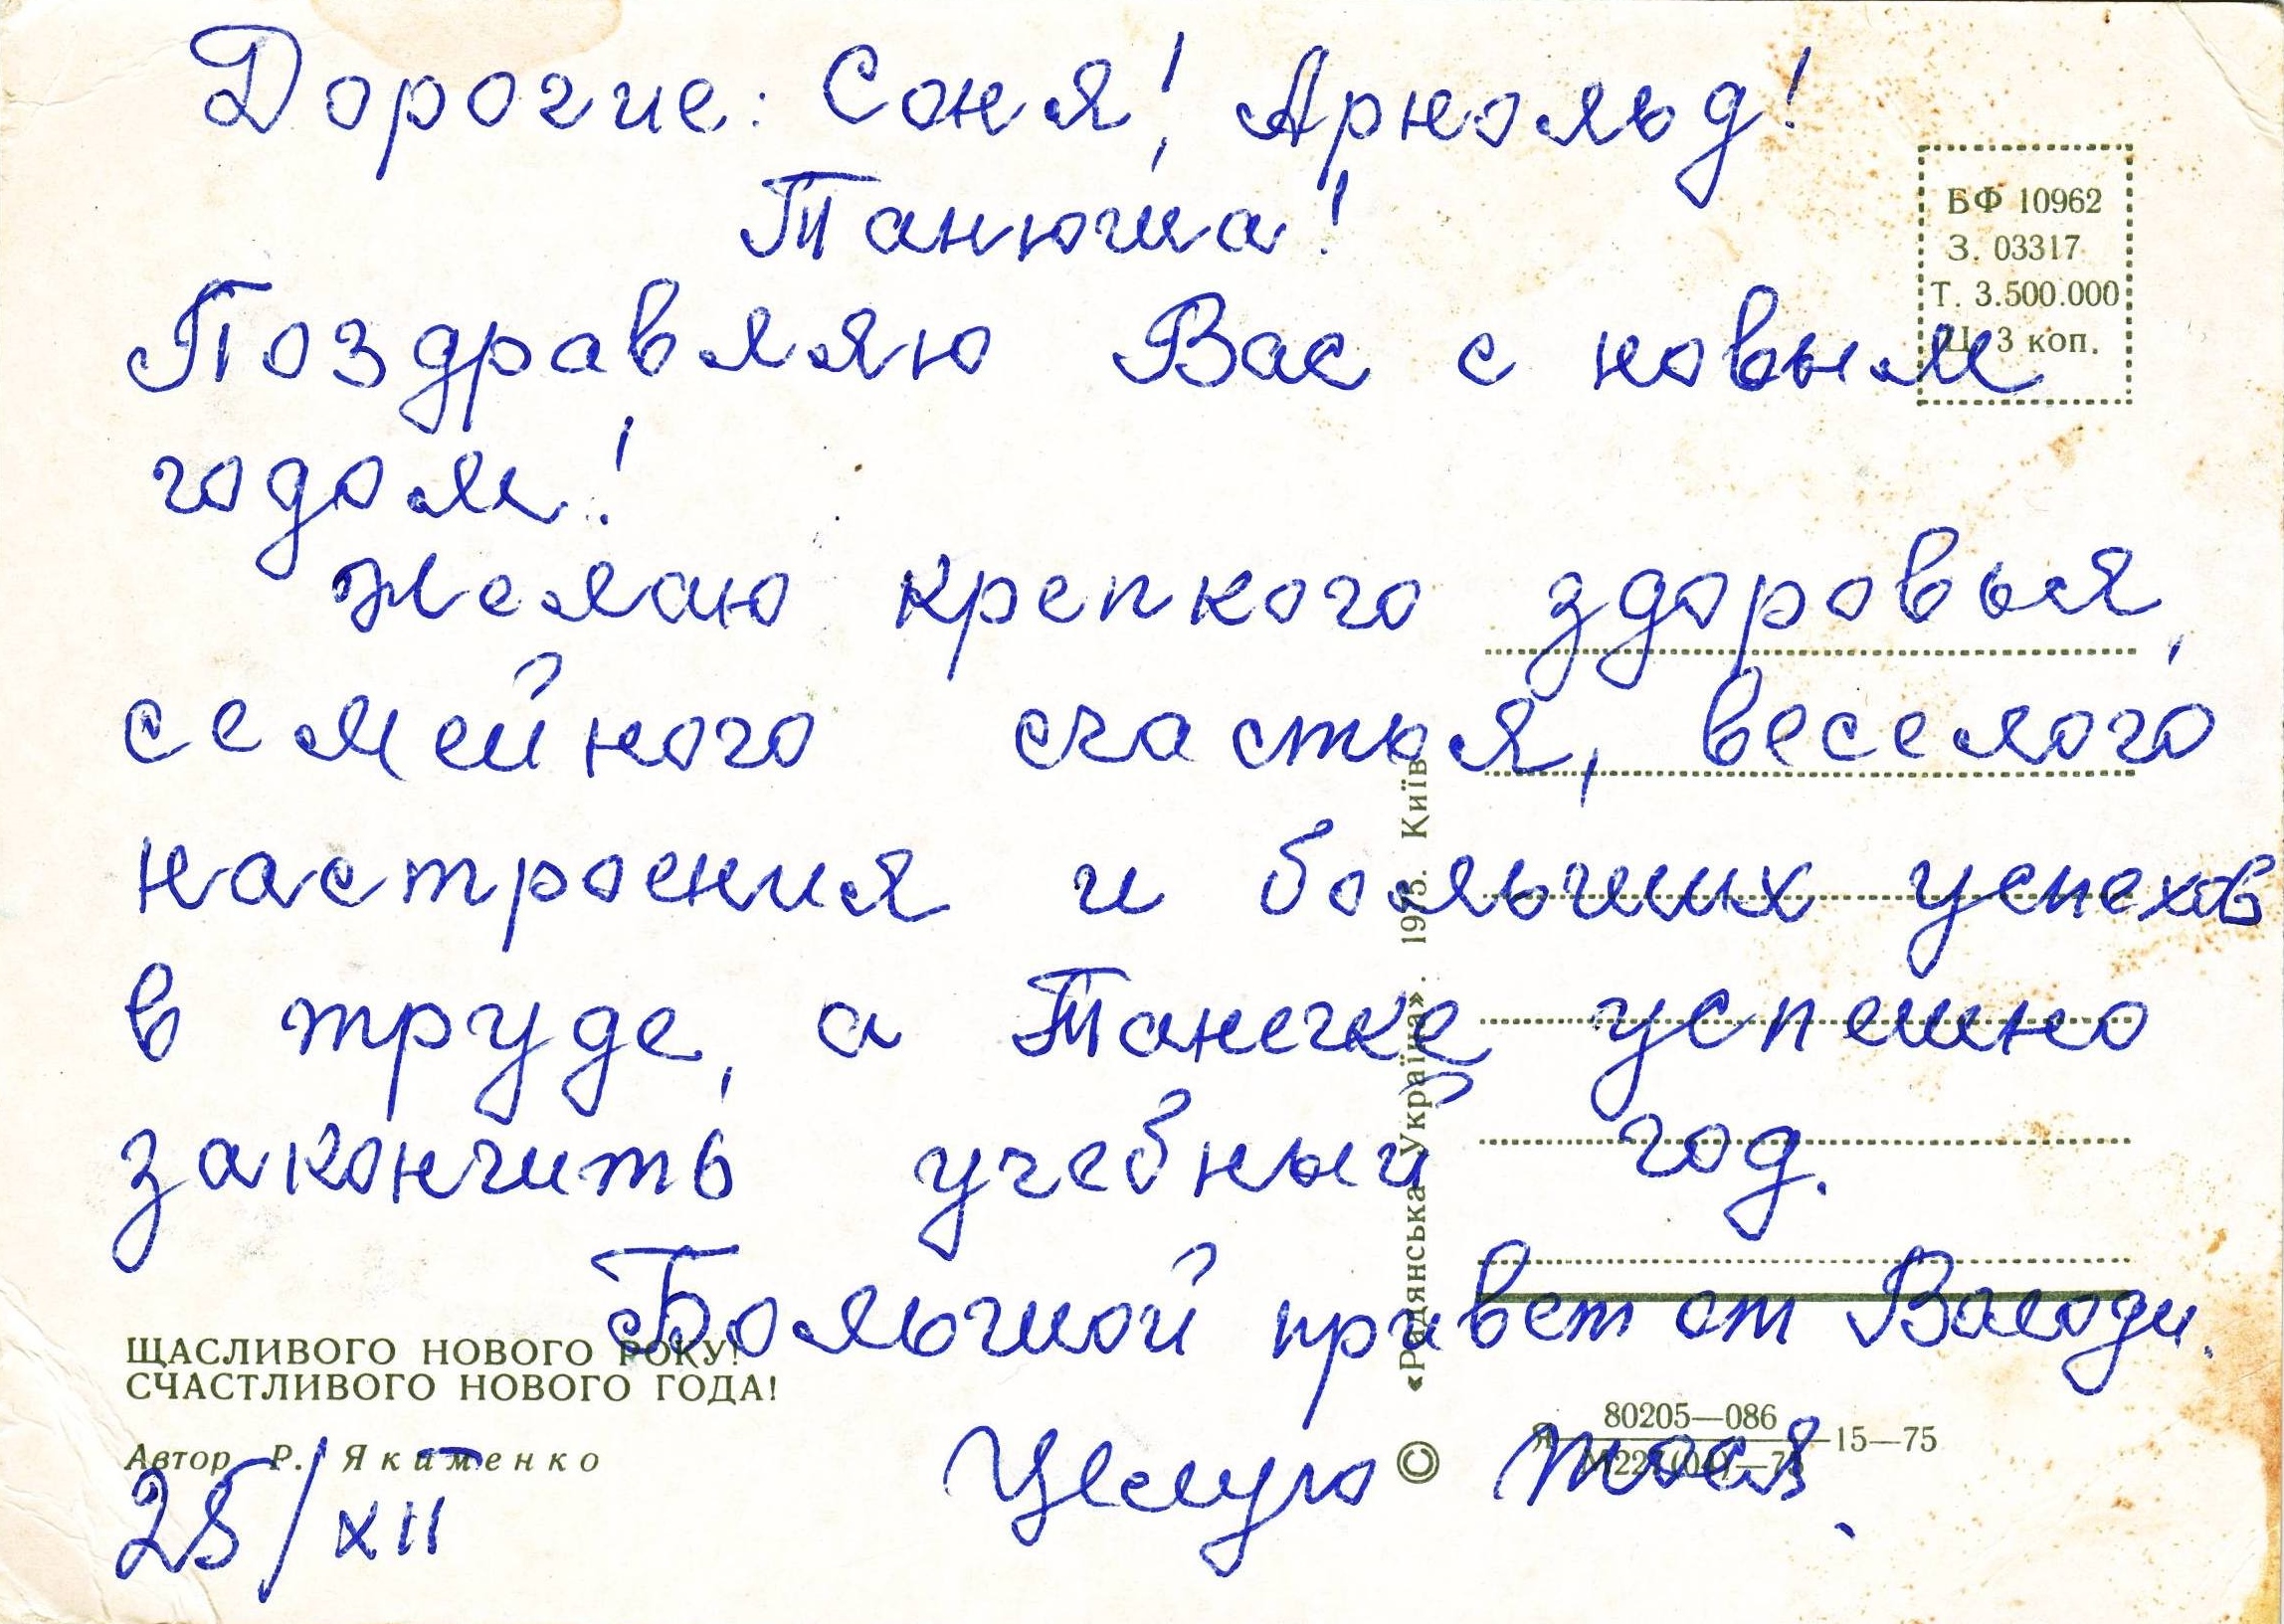 Дорогие: Соня!, Арнольд!
Танюша!
БФ 10962
З. 03317
Т. 3.500.000
Ц. 3 коп.
Поздравляю Вас с новым
годом!
Желаю крепкого здоровья,
семейного счастья, веселого
настроения и больших успехов
в труде, а Танечке успешно
закончить учебный год.
Большой привет от Володи.
Целую Тося.
25/XII
«Радянська Україна». 1975. Київ
ЩАСЛИВОГО НОВОГО РОКУ!
СЧАСТЛИВОГО НОВОГО ГОДА!
Автор Р. Якименко
©
80205—086
15—75